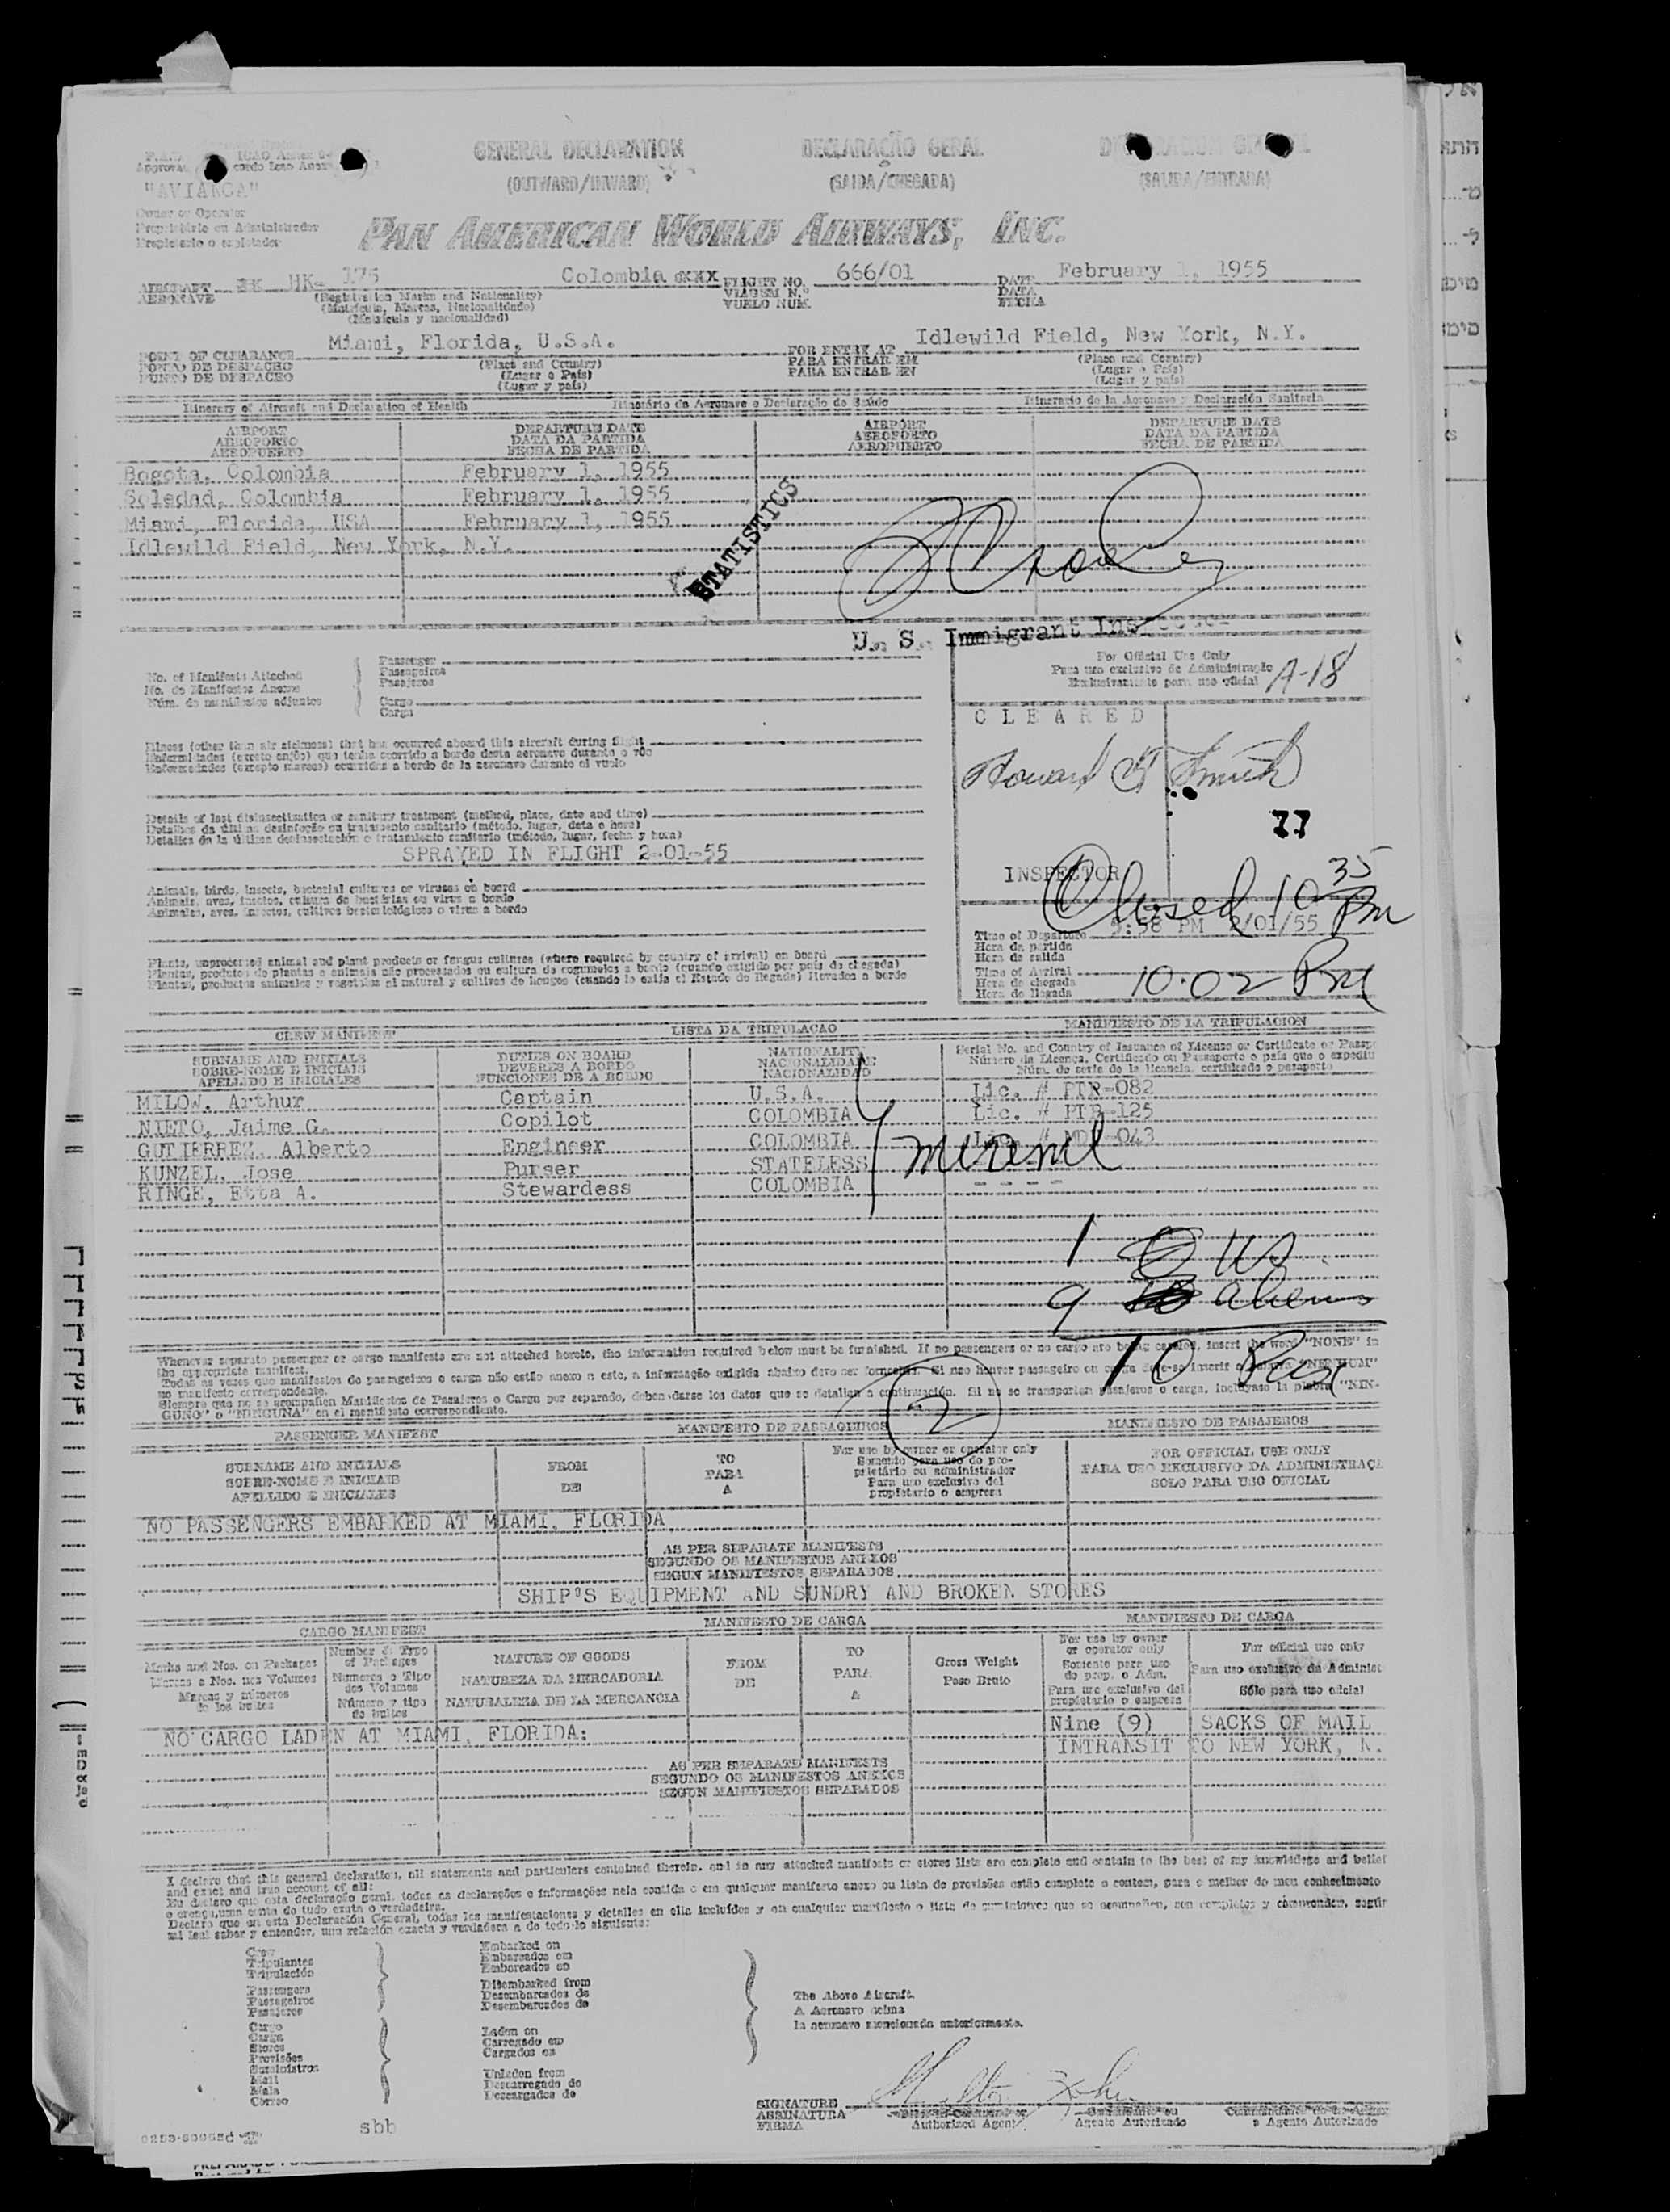 GENERAL DECLARATION
(OUTWARD/INWARD)
DECLARAÇÃO GERAL
(SAIDA/CHEGADA)
(SALIDA/ENTRADA)
"AVIANCA"
Owner or Operator
Proprietário ou Administrador
Propietario o explotador
PAN AMERICAN WORLD AIRWAYS, INC.
AIRCRAFT HK- 175 Colombia xxx FLIGHT NO. 666/01 DATE February 1, 1955
AERONAVE (Registration Marks and Nationality) VIAGEM N.º DATA
(Matrícula, Marcas, Nacionalidade) VUELO NUM. FECHA
(Matrícula y nacionalidad)
POINT OF CLEARANCE Miami, Florida, U.S.A. FOR ENTRY AT Idlewild Field, New York, N.Y.
PONTO DE DESPACHO (Place and Country) PARA ENTRAR EM (Place and Country)
PUNTO DE DESPACHO (Lugar e País) PARA ENTRAR EN (Lugar e País)
(Lugar y país) (Lugar y país)
Itinerary of Aircraft and Declaration of Health Itinerário da Aeronave e Declaração de Saúde Itinerario de la Aeronave y Declaración Sanitaria
AIRPORT DEPARTURE DATE AIRPORT DEPARTURE DATE
AEROPORTO DATA DA PARTIDA AEROPORTO DATA DA PARTIDA
AEROPUERTO FECHA DE PARTIDA AEROPUERTO FECHA DE PARTIDA
Bogota, Colombia February 1, 1955
Soledad, Colombia February 1, 1955
Miami, Florida, USA February 1, 1955
Idlewild Field, New York, N.Y.
STATISTICS
U. S. Immigrant
No. of Manifests Attached
No. de Manifestos Anexos
Núm. de manifiestos adjuntos
Passenger
Passageiros
Pasajeros
Cargo
Carga
For Official Use Only
Para uso exclusivo da Administração
Exclusivamente para uso oficial A-18
CLEARED
Howard Smith
77
INSPECTOR
Closed 10 35 Pm
Illness (other than air sickness) that has occurred aboard this aircraft during flight
Enfermidades (exceto enjôo) que tenha ocorrido a bordo desta aeronave durante o vôo
Enfermedades (excepto mareos) ocurridas a bordo de la aeronave durante el vuelo
Details of last disinsectization or sanitary treatment (method, place, date and time)
Detalhes da última desinfeção ou tratamento sanitario (método, lugar, data e hora)
Detalles de la última desinsectación o tratamiento sanitario (método, lugar, fecha y hora)
SPRAYED IN FLIGHT 2-01-55
Animals, birds, insects, bacterial cultures or viruses on board
Animais, aves, insetos, cultura de bactérias ou virus a bordo
Animales, aves, insectos, cultivos bacteriológicos o virus a bordo
Plants, unprocessed animal and plant products or fungus cultures (where required by country of arrival) on board
Plantas, produtos de plantas e animais não processados ou cultura de cogumelos a bordo (quando exigido por país da chegada)
Plantas, productos animales y vegetales al natural y cultivos de hongos (cuando lo exija el Estado de llegada) llevados a bordo
Time of Departure 5:58 PM 2/01/55
Hora da partida
Hora de salida
Time of Arrival 10:02 Pm
Hora da chegada
Hora de llegada
CREW MANIFEST LISTA DA TRIPULAÇÃO MANIFIESTO DE LA TRIPULACION
SURNAME AND INITIALS DUTIES ON BOARD NATIONALITY Serial No. and Country of Issuance of License or Certificate or
SOBRE-NOME E INICIAIS DEVERES A BORDO NACIONALIDADE Número da Licença, Certificado ou Passaporte o país que o expediu
APELLIDO E INICIALES FUNCIONES DE A BORDO NACIONALIDAD Núm. de serie de la licencia, certificado o pasaporte
MILOW, Arthur Captain U.S.A. Lic. # PTR-082
NIETO, Jaime G. Copilot COLOMBIA Lic. # PTR-125
GUTIERREZ, Alberto Engineer COLOMBIA Lic. # 043
KUNZEL, Jose Purser STATELESS
RINGE, Etta A. Stewardess COLOMBIA - - - -
1 US
9 aliens
10 Pax
Whenever separate passenger or cargo manifests are not attached hereto, the information required below must be furnished. If no passengers or no cargo are being carried, insert the word "NONE" in
the appropriate manifest.
Todas as vezes que manifestos de passageiros e carga não estão anexo a este, a informação exigida abaixo deve ser fornecida. Si não houver passageiro ou carga
no manifesto correspondente.
Siempre que no se acompañen Manifiestos de Pasajeros o Carga por separado, deben darse los datos que se detallan a continuación. Si no se transportan pasajeros o carga, incluyase la "NIN-
GUNO" o "NINGUNA" en el manifiesto correspondiente.
2
PASSENGER MANIFEST MANIFESTO DE PASSAGEIROS MANIFIESTO DE PASAJEROS
SURNAME AND INITIALS FROM TO For use by owner or operator only FOR OFFICIAL USE ONLY
SOBRE-NOME E INICIAIS DE PARA Somente para uso do pro- PARA USO EXCLUSIVO DA ADMINISTRAÇA
APELLIDO E INICIALES A prietário ou administrador SOLO PARA USO OFICIAL
Para uso exclusivo del
propietario o empresa
NO PASSENGERS EMBARKED AT MIAMI, FLORIDA
AS PER SEPARATE MANIFESTS
SEGUNDO OS MANIFESTOS ANEXOS
SEGUN MANIFIESTOS SEPARADOS
SHIP'S EQUIPMENT AND SUNDRY AND BROKEN STORES
CARGO MANIFEST MANIFESTO DE CARGA MANIFIESTO DE CARGA
Marks and Nos. on Packages
Marcas e Nos. nos Volumes
Marcas y números
de los bultos
Number & Type
of Packages
Numeros e Tipo
dos Volumes
Número y tipo
de bultos
NATURE OF GOODS
NATUREZA DA MERCADORIA
NATURALEZA DE LA MERCANCIA
FROM
DE
TO
PARA
A
Gross Weight
Peso Bruto
For use by owner
or operator only
Somente para uso
do prop. o Adm.
Para uso exclusivo del
propietario o empresa
For official use only
Para uso exclusivo da Administ
Sólo para uso oficial
NO CARGO LADEN AT MIAMI, FLORIDA: Nine (9) SACKS OF MAIL
INTRANSIT TO NEW YORK, N.
AS PER SEPARATE MANIFESTS
SEGUNDO OS MANIFESTOS ANEXOS
SEGUN MANIFIESTOS SEPARADOS
I declare that this general declaration, all statements and particulars contained therein, and in any attached manifests or stores lists are complete and contain to the best of my knowledge and belief
and exact and true account of all:
Eu declaro que esta declaração geral, todas as declarações e informações nela contida e em qualquer manifesto anexo ou lista de provisões estão completo e contem, para o melhor do meu conhecimento
e crença, uma conta de tudo exata e verdadeira.
Declaro que en esta Declaración General, todas las manifestaciones y detalles en ella incluídos y en cualquier manifiesto o lista de suministros que se acompañen, son completos y comprenden, según
mi leal saber y entender, una relación exacta y verdadera a de todo lo siguiente:
Crew
Tripulantes
Tripulación
Passengers
Passageiros
Pasajeros
Cargo
Carga
Stores
Provisões
Suministros
Mail
Mala
Correo
Embarked on
Embarcados em
Embarcados en
Disembarked from
Desembarcados de
Desembarcados de
Laden on
Carregado em
Cargados en
Unladen from
Descarregado de
Descargados de
The Above Aircraft.
A Aeronave acima
la aeronave mencionada anteriormente.
SIGNATURE
ASSINATURA Authorized Agent Agente Autorizado o Agente Autorizado
FIRMA
sbb